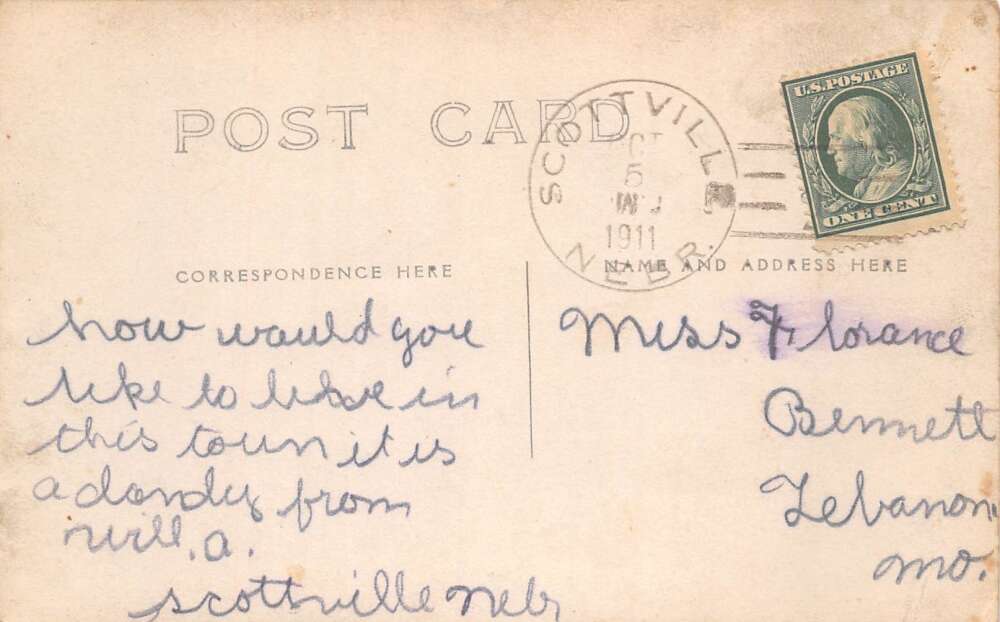 POST CARD
SCOTTVILLE
5
1911
NEBR.
U.S. POSTAGE
ONE CENT
CORRESPONDENCE HERE
NAME AND ADDRESS HERE
how would you
like to live in
this town it is
a dandy from
will. a.
scottville Nebr
Miss Florance
Bennett
Lebanon,
mo.